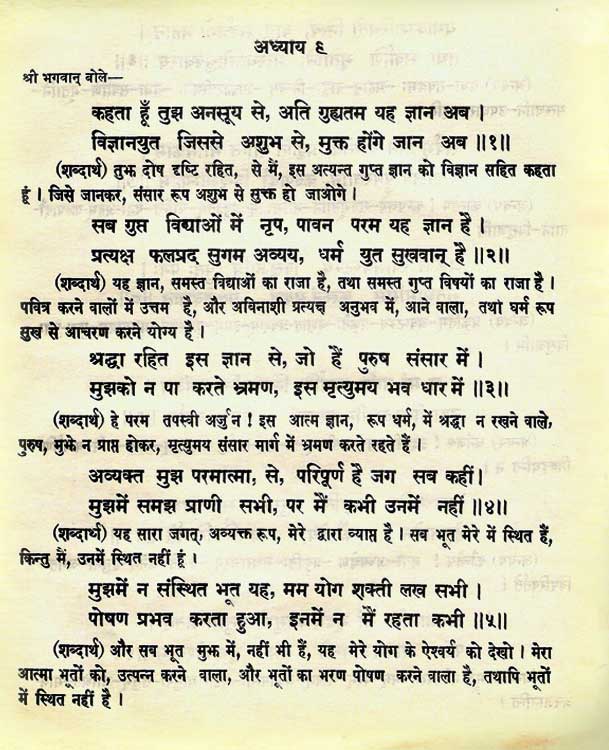 अध्याय ९
श्री भगवान् बोले—
कहता हूँ तुझ अनसूय से, अति गुह्यतम यह ज्ञान अब ।
विज्ञानयुत जिससे अशुभ से, मुक्त होंगे जान अब ॥१॥
(शब्दार्थ) तुझ दोष दृष्टि रहित, से मैं, इस अत्यन्त गुप्त ज्ञान को विज्ञान सहित कहता
हूं । जिसे जानकर, संसार रूप अशुभ से मुक्त हो जाओगे ।
सब गुप्त विद्याओं में नृप, पावन परम यह ज्ञान है ।
प्रत्यक्ष फलप्रद सुगम अव्यय, धर्म युत सुखवान् है ॥२॥
(शब्दार्थ) यह ज्ञान, समस्त विद्याओं का राजा है, तथा समस्त गुप्त विषयों का राजा है ।
पवित्र करने वालों में उत्तम है, और अविनाशी प्रत्यक्ष अनुभव में, आने वाला, तथा धर्म रूप
सुख से आचरण करने योग्य है ।
श्रद्धा रहित इस ज्ञान से, जो हैं पुरुष संसार में ।
मुझको न पा करते भ्रमण, इस मृत्युमय भव धार में ॥३॥
(शब्दार्थ) हे परम तपस्वी अर्जुन ! इस आत्म ज्ञान, रूप धर्म, में श्रद्धा न रखने वाले,
पुरुष, मुझे न प्राप्त होकर, मृत्युमय संसार मार्ग में भ्रमण करते रहते हैं ।
अव्यक्त मुझ परमात्मा, से, परिपूर्ण है जग सब कहीं।
मुझमें समझ प्राणी सभी, पर मैं कभी उनमें नहीं ॥४॥
(शब्दार्थ) यह सारा जगत्, अव्यक्त रूप, मेरे द्वारा व्याप्त है । सब भूत मेरे में स्थित हैं,
किन्तु मैं, उनमें स्थित नहीं हूं ।
मुझमें न संस्थित भूत यह, मम योग शक्ती लख सभी ।
पोषण प्रभव करता हुआ, इनमें न मैं रहता कभी ॥५॥
(शब्दार्थ) और सब भूत मुझ में, नहीं भी हैं, यह मेरे योग के ऐश्वर्य को देखो । मेरा
आत्मा भूतों को, उत्पन्न करने वाला, और भूतों का भरण पोषण करने वाला है, तथापि भूतों
में स्थित नहीं है ।